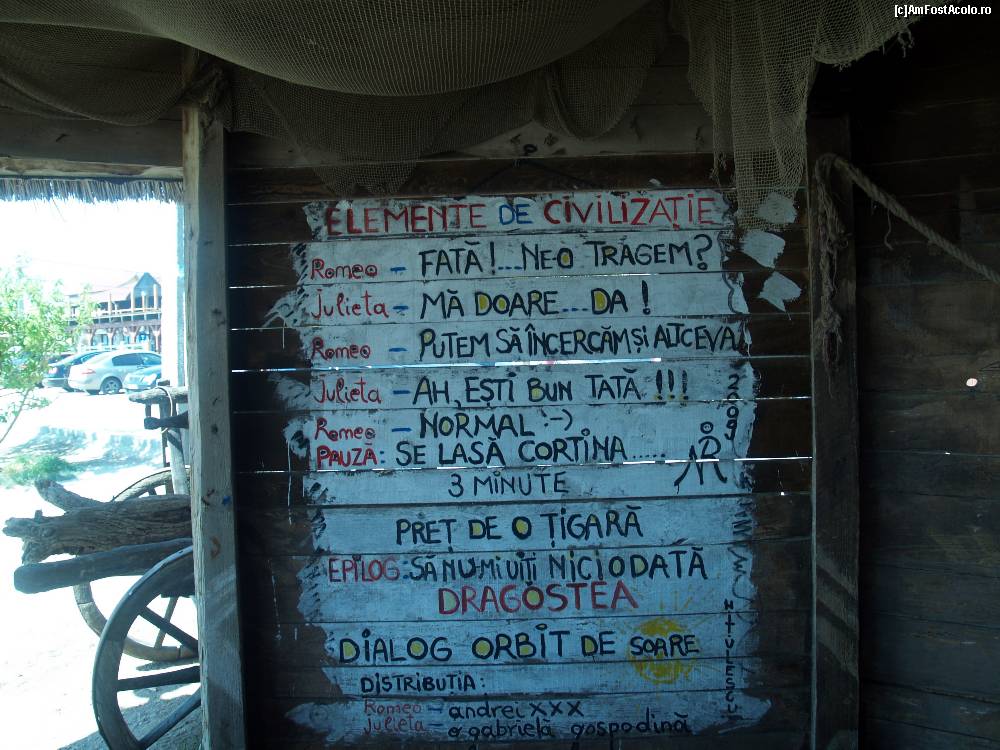 [c]AmFostAcolo.ro
ELEMENTE DE CIVILIZAȚIE
Romeo - FATĂ!...NE-O TRAGEM?
Julieta - MĂ DOARE...DA!
Romeo - PUTEM SĂ ÎNCERCĂM ȘI ALTCEVA
Julieta - AH, EȘTI BUN TATĂ !!!
Romeo - NORMAL :-)
PAUZĂ: SE LASĂ CORTINA.....
3 MINUTE
PREȚ DE O ȚIGARĂ
EPILOG: SĂ NU-MI UIȚI NICIODATĂ
DRAGOSTEA
DIALOG ORBIT DE SOARE
DISTRIBUȚIA:
Romeo - andrei XXX
Julieta - o gabrielă gospodină
2009